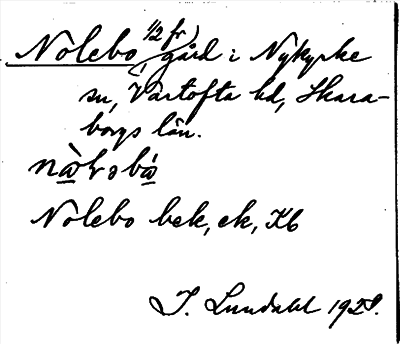 Nolebo 1/2 fr, gård i Nykyrke
sn, Vartofta hd, Skara-
borgs län.
Nolebo bek, ek, Kb
I. Lundahl 1928.